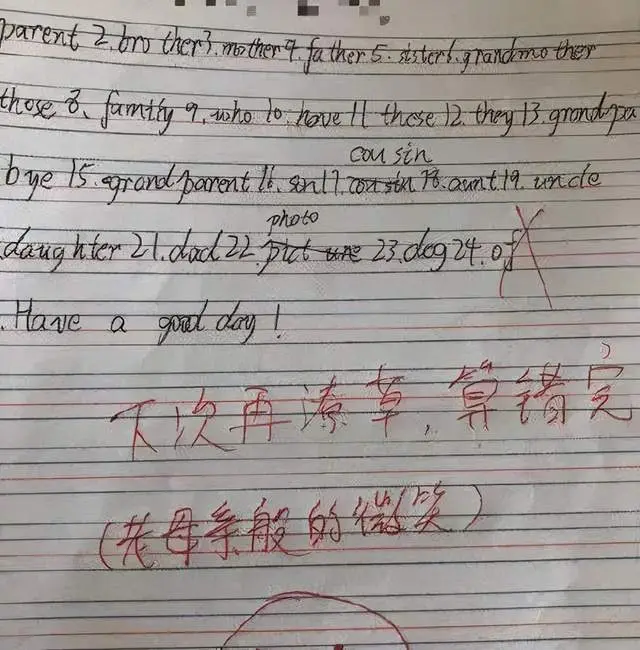 parent 2. brother 3. mother 4. father 5. sister 6. grandmother
those 8. family 9. who 10. have 11 these 12. they 13. grandpa
cousin
bye 15. grandparent 16. son 17. cousin 18. aunt 19. uncle
photo
daughter 21. dad 22. picture 23. dog 24. of
. Have a good day !
下次再潦草,算错完
(老母亲般的微笑)